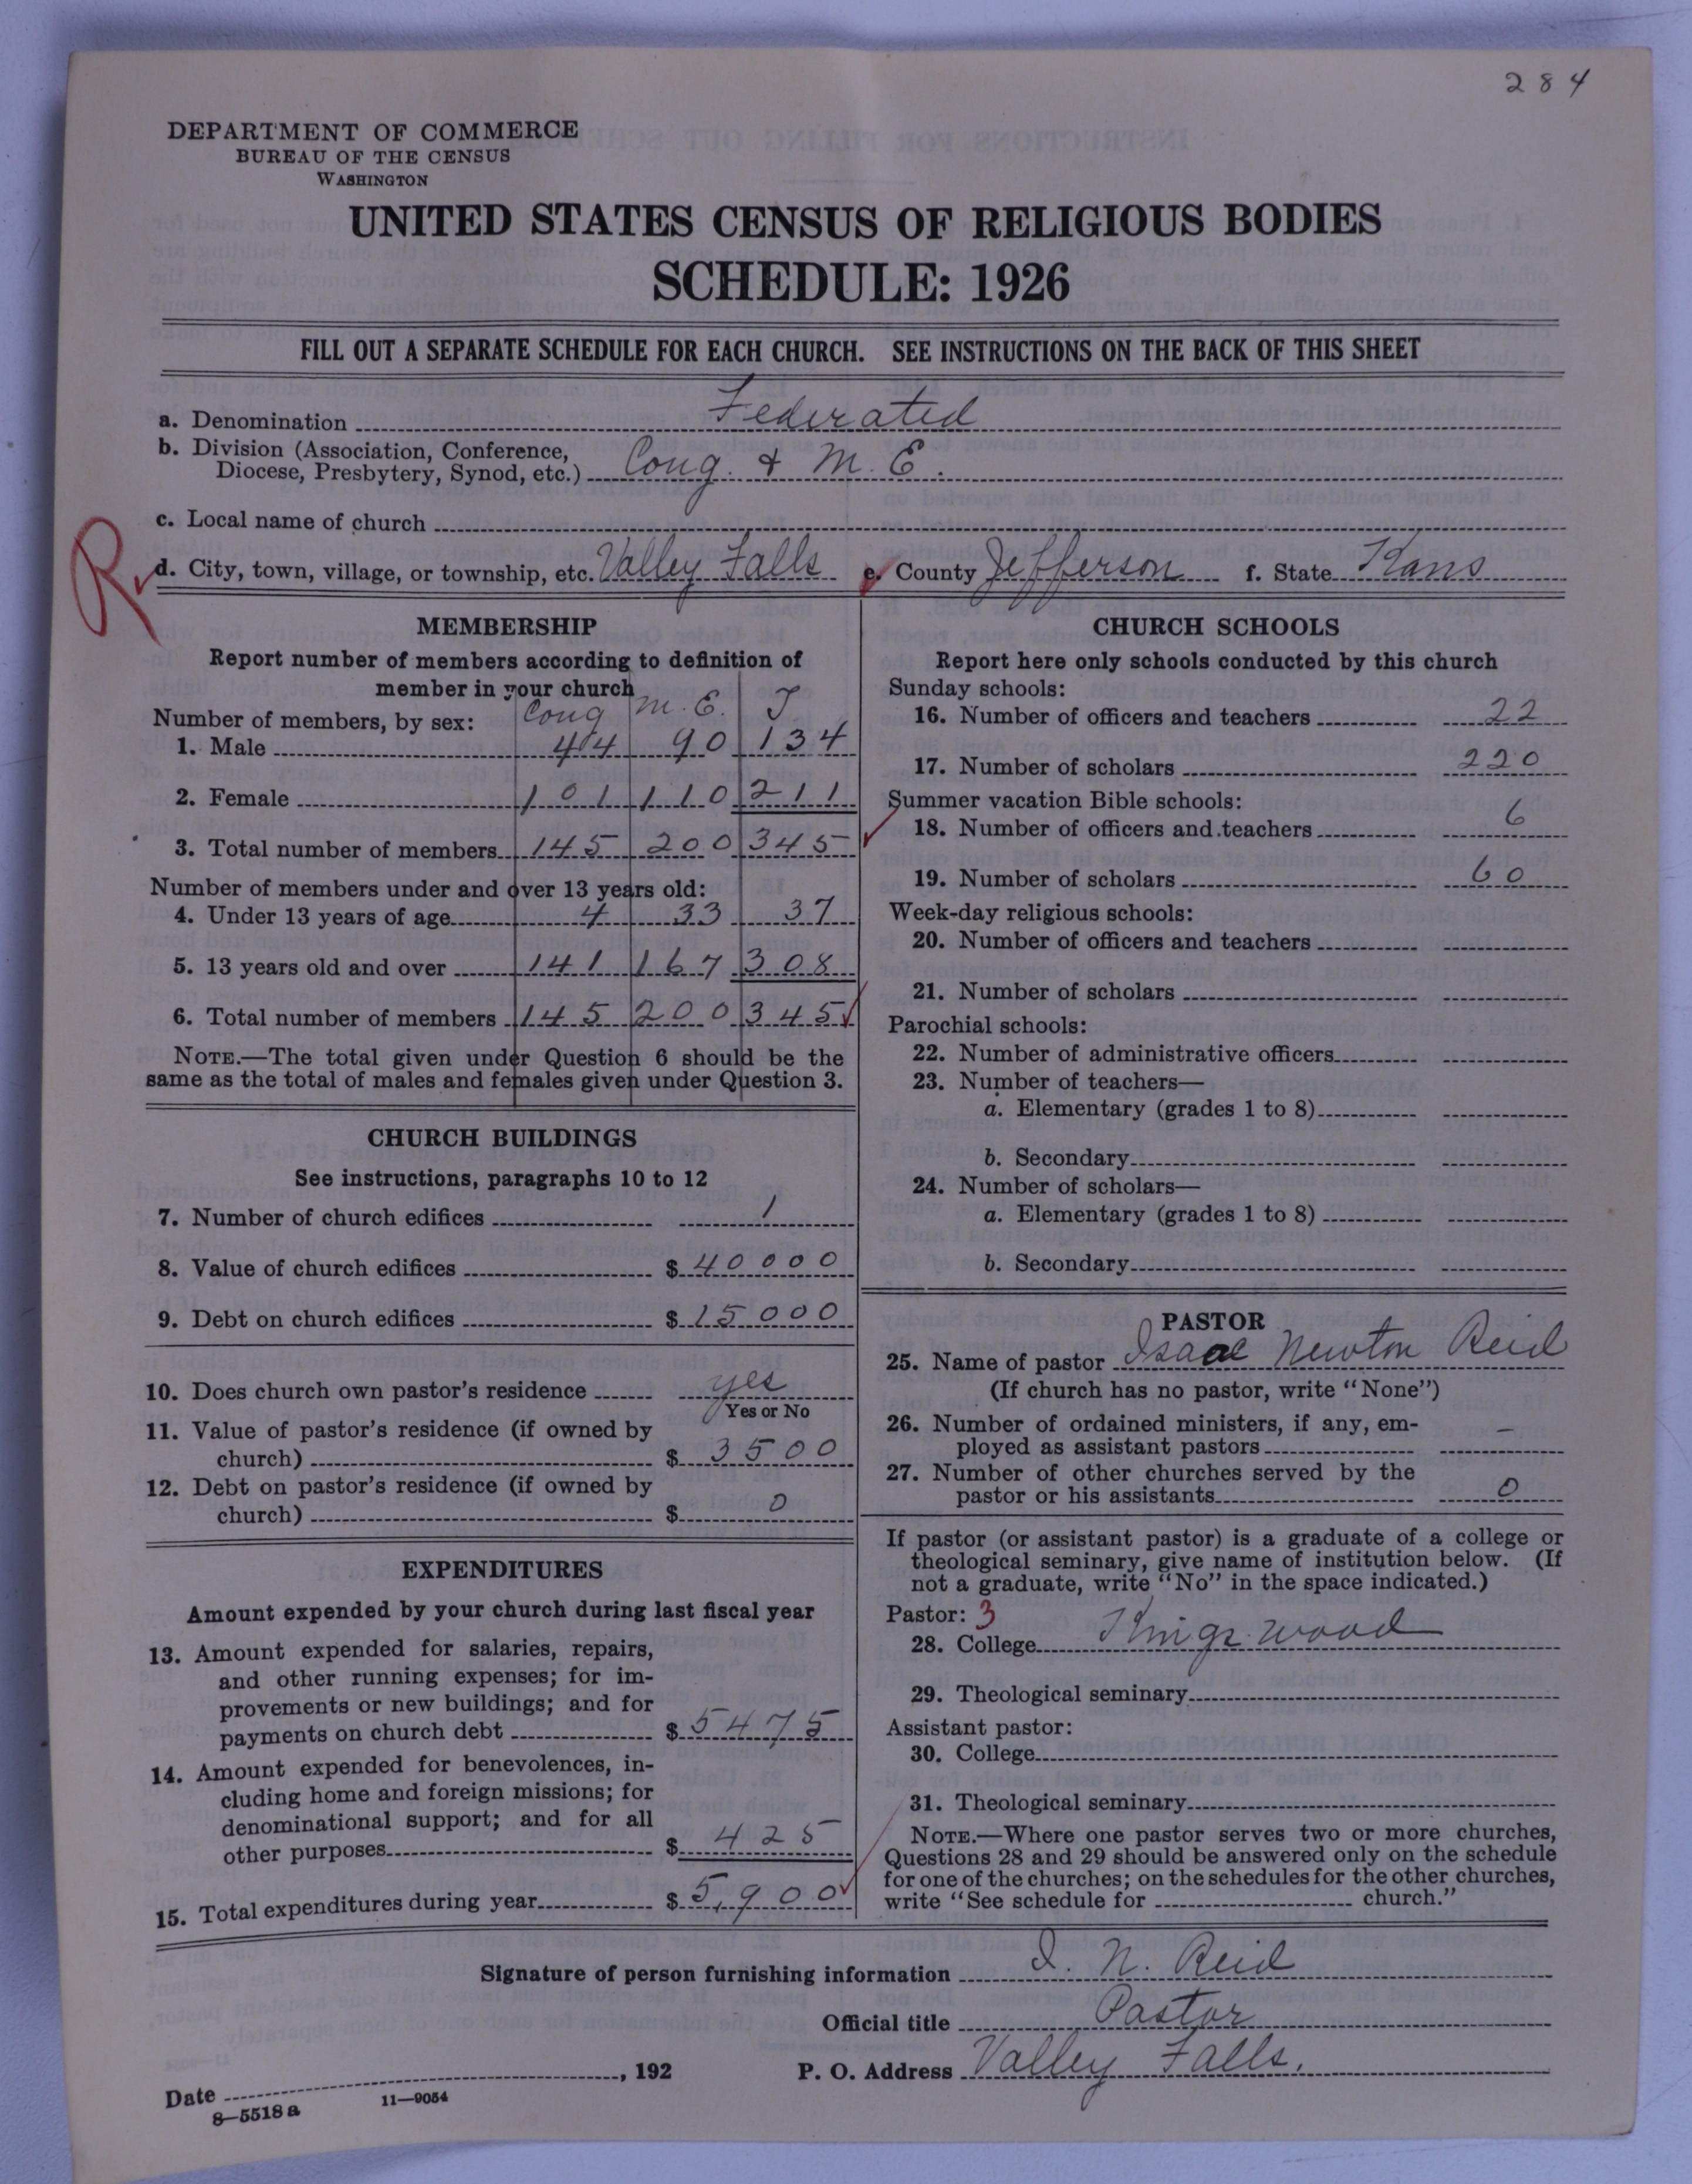 284
DEPARTMENT OF COMMERCE
BUREAU OF THE CENSUS
WASHINGTON
UNITED STATES CENSUS OF RELIGIOUS BODIES
SCHEDULE: 1926
FILL OUT A SEPARATE SCHEDULE FOR EACH CHURCH. SEE INSTRUCTIONS ON THE BACK OF THIS SHEET
a. Denomination Federated
b. Division (Association, Conference,
Diocese, Presbytery, Synod, etc.) Cong. & M. E.
c. Local name of church
R d. City, town, village, or township, etc. Valley Falls e. County Jefferson f. State Kans
MEMBERSHIP
Report number of members according to definition of
member in your church
Cong M. E. T
Number of members, by sex:
1. Male 44 90 134
2. Female 101 110 211
3. Total number of members 145 200 345
Number of members under and over 13 years old:
4. Under 13 years of age 4 33 37
5. 13 years old and over 141 167 308
6. Total number of members 145 200 345
NOTE.—The total given under Question 6 should be the
same as the total of males and females given under Question 3.
CHURCH BUILDINGS
See instructions, paragraphs 10 to 12
7. Number of church edifices 1
8. Value of church edifices $ 40000
9. Debt on church edifices $ 15000
10. Does church own pastor's residence yes
Yes or No
11. Value of pastor's residence (if owned by
church) $ 3500
12. Debt on pastor's residence (if owned by
church) $ 0
EXPENDITURES
Amount expended by your church during last fiscal year
13. Amount expended for salaries, repairs,
and other running expenses; for im-
provements or new buildings; and for
payments on church debt $ 5475
14. Amount expended for benevolences, in-
cluding home and foreign missions; for
denominational support; and for all
other purposes $ 425
15. Total expenditures during year $ 5,900
CHURCH SCHOOLS
Report here only schools conducted by this church
Sunday schools:
16. Number of officers and teachers 22
17. Number of scholars 220
Summer vacation Bible schools:
18. Number of officers and teachers 6
19. Number of scholars 60
Week-day religious schools:
20. Number of officers and teachers
21. Number of scholars
Parochial schools:
22. Number of administrative officers
23. Number of teachers—
a. Elementary (grades 1 to 8)
b. Secondary
24. Number of scholars—
a. Elementary (grades 1 to 8)
b. Secondary
PASTOR
25. Name of pastor Isaac Newton Reid
(If church has no pastor, write "None")
26. Number of ordained ministers, if any, em-
ployed as assistant pastors –
27. Number of other churches served by the
pastor or his assistants 0
If pastor (or assistant pastor) is a graduate of a college or
theological seminary, give name of institution below. (If
not a graduate, write "No" in the space indicated.)
Pastor: 3
28. College Kingswood
29. Theological seminary
Assistant pastor:
30. College
31. Theological seminary
NOTE.—Where one pastor serves two or more churches,
Questions 28 and 29 should be answered only on the schedule
for one of the churches; on the schedules for the other churches,
write "See schedule for church."
Signature of person furnishing information I. N. Reid
Official title Pastor
Date , 192 P. O. Address Valley Falls.
8—5518 a 11—9054